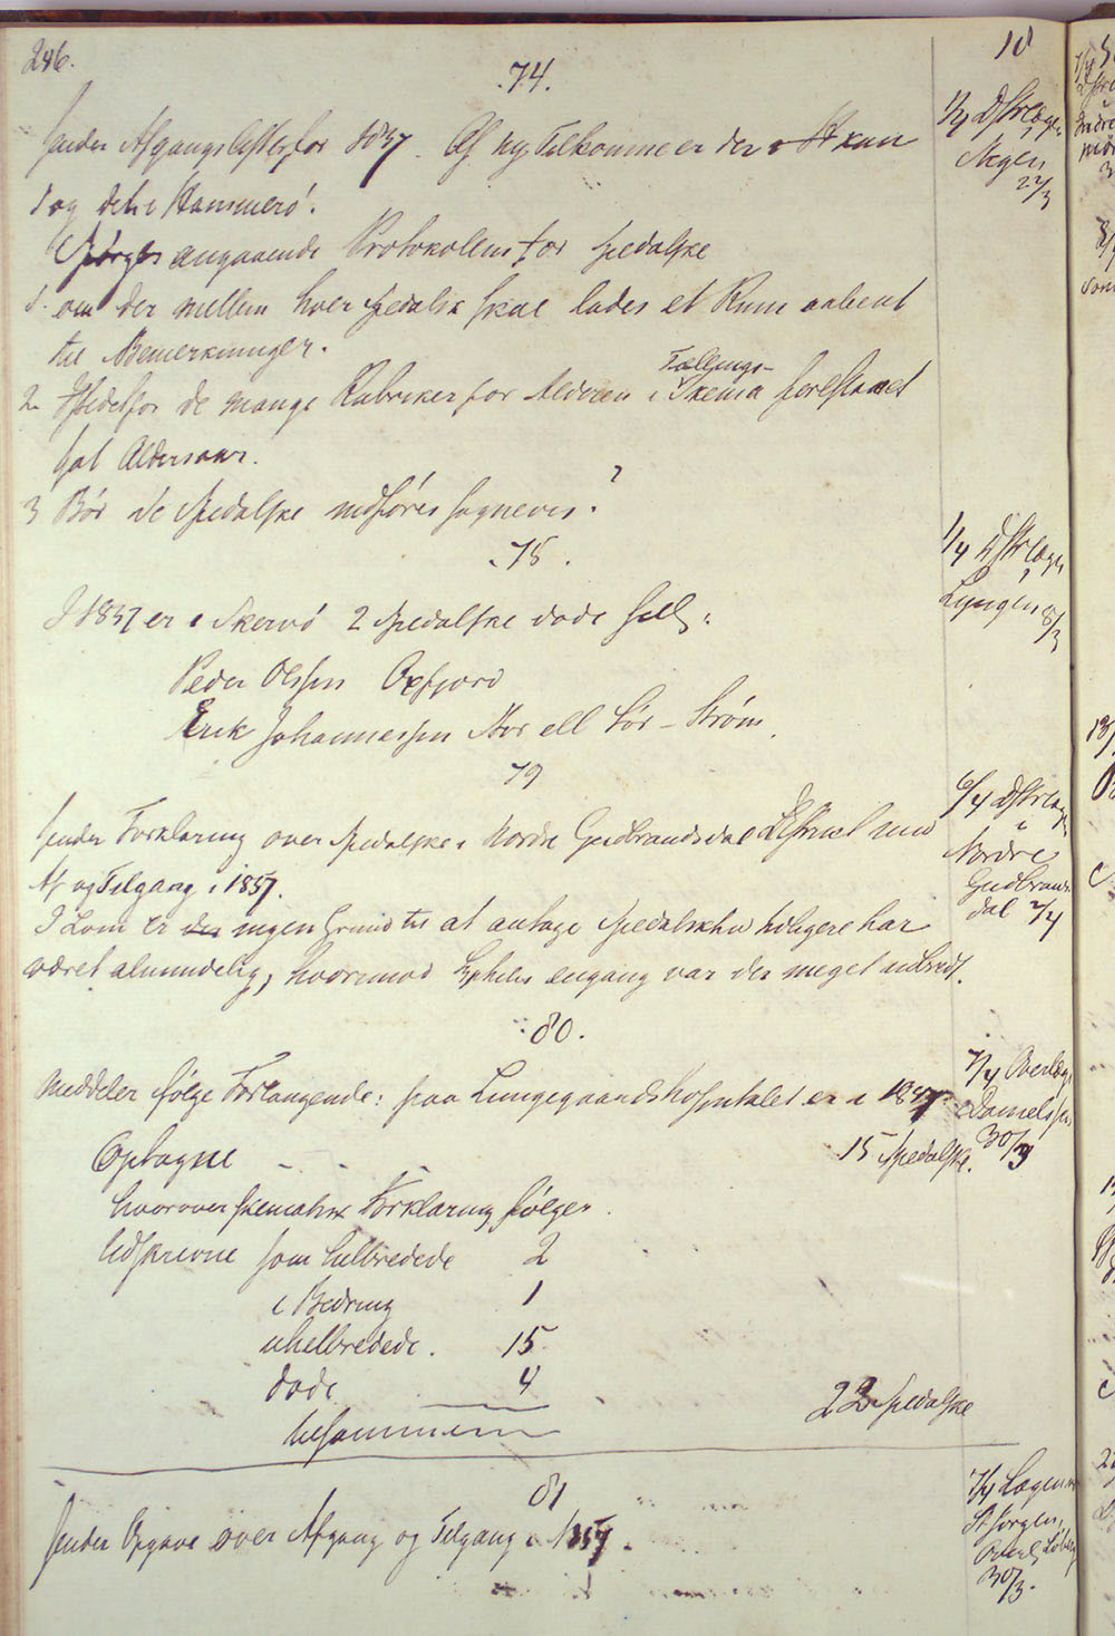 246.
74.
sender Afgangslister for 1857. Af ny Tilkomne er der kun
1 og det i Hammerø.
Spørges angaaende Protokollen for spedalske
1. om der mellem hver spedalsk skal lades et Rum aabent
til Bemerkninger.
2. Istedetfor de mange Rubriker for Alderen i Tællings-Skema foreslaaet
sat Aldersaar.
3 Bør de spedalske indføres sognevis?
1/4 Dstrlægen
22/3
75.
I 1857 er i Skervø 2 spedalske døde
Peder Olssen Oxfjord
Erik Johannessen Nor ell Sør-Strøm.
1/4 Dstrlægen
i
Lyngen 8/3
79
sender Forklaring over spedalske i Nordre Gudbrandsdal Distrikt med
Af og Tilgang i 1857.
I Lom er der ingen Grund til at antage Spedalskhed tidligere har
været almindelig, hvorimod Syphilis engang var der meget udbredt.
6/4 Dstrlægen
i
Nordre
Gudbrands
dal 2/4
80.
Meddeler følge Forlangende: paa Lungegaardshospitalet er i 1857
Optagne - - - 15 Spedalske.
hvorover skematisk Forklaring følger.
Udskrevne som helbredede 2
i Bedring 1
uhelbredede. 15
døde 4
tilsammen 22 Spedalske
7/4 Overlæge
Danielssen
30/3
81
sender Opgave over Afgang og Tilgang i 1857.
7/4 Lægen ved
St Jørgen,
Overl Løberg
30/3.